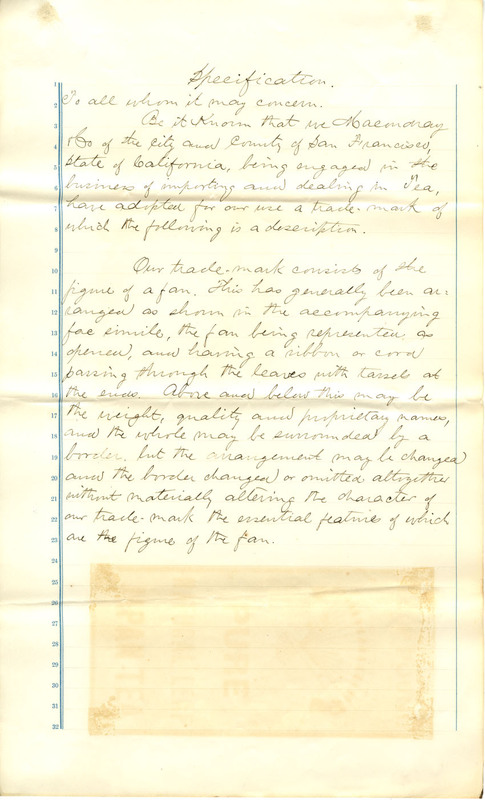 Specification.
To all whom it may concern.
Be it Known that we Macondray
& Co of the City and County of San Francisco,
State of California, being engaged in the
business of importing and dealing in Tea,
have adopted for our use a trade-mark of
which the following is a description.
Our trade-mark consists of the
figure of a fan. This has generally been ar-
ranged as shown in the accompanying
fac simile, the fan being represented as
opened, and having a ribbon or cord
passing through the leaves with tassels at
the ends. Above and below this may be
the weight, quality and proprietary names,
and the whole may be surrounded by a
border, but the arrangement may be changed
and the border changed or omitted altogether
without materially altering the character of
our trade-mark the essential features of which
are the figure of the fan.
1
2
3
4
5
6
7
8
9
10
11
12
13
14
15
16
17
18
19
20
21
22
23
24
25
26
27
28
29
30
31
32
PURE